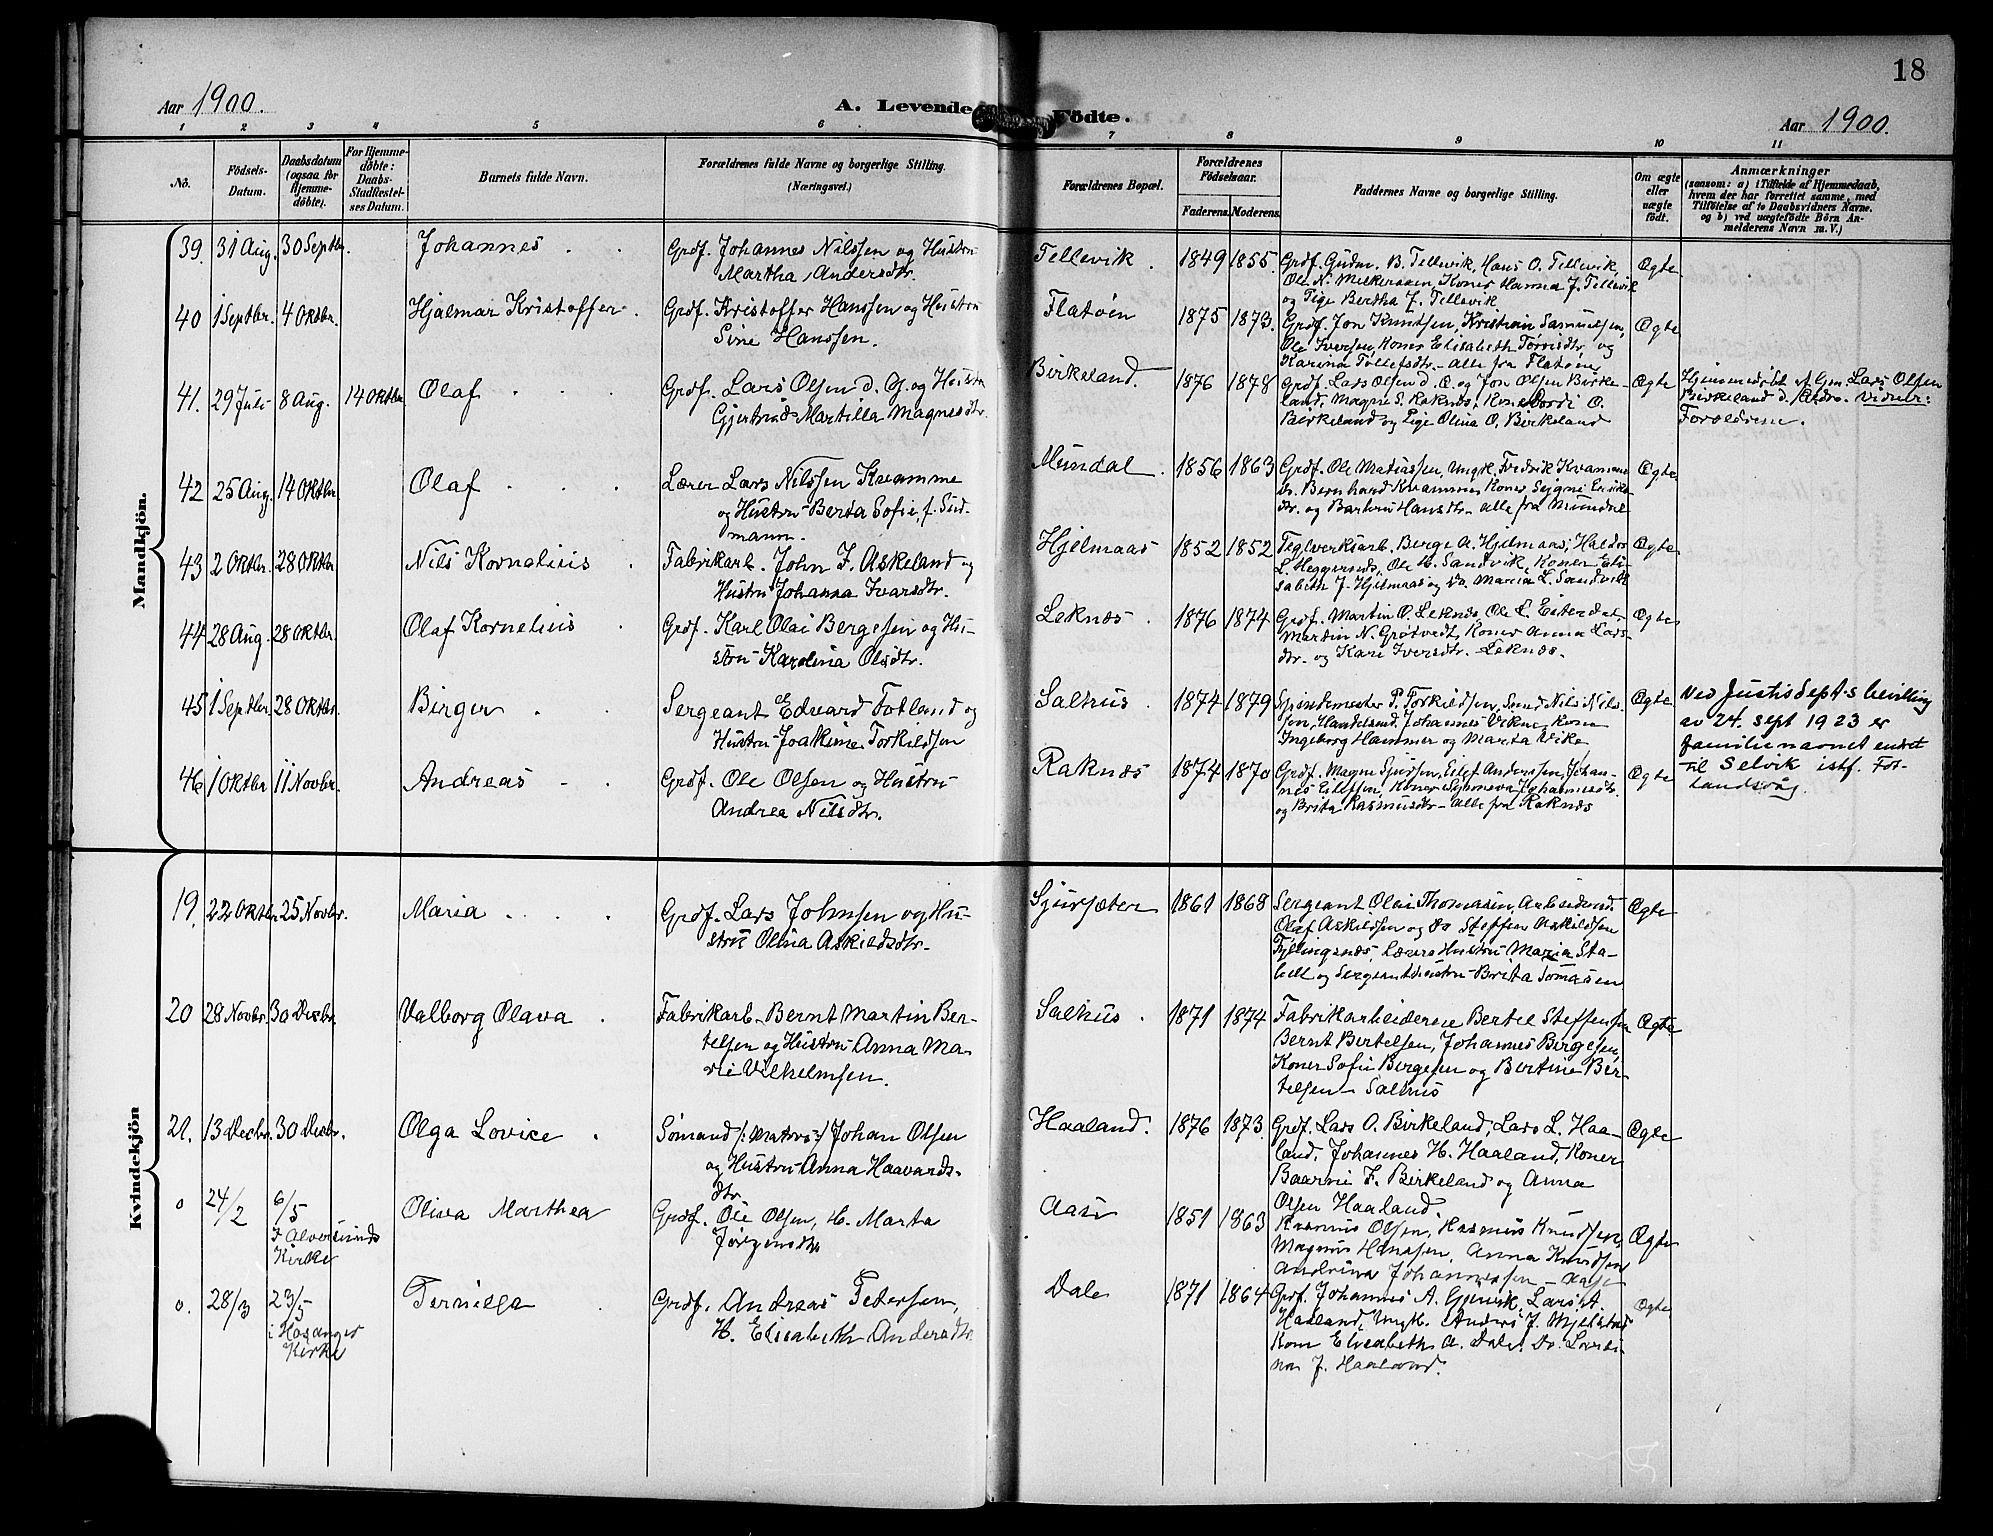 18
Aar 1900.
A. Levende Födte.
Aar 1900.
1 2 3 4 5 6 7 8 9 10 11
No.
Födsels-Datum.
Daabsdatum (ogsaa for Hjemmedöbte).
For Hjemmedöbte: Daabs-Stadfestelses Datum.
Barnets fulde Navn.
Forældrenes fulde Navne og borgerlige Stilling. (Næringsvei.)
Forældrenes Bopæl.
Forældrenes Födselsaar.
Faderens. Moderens.
Faddernes Navne og borgerlige Stilling.
Om ægte eller uægte födt.
Anmærkninger
(saasom: a) i Tilfælde af Hjemmedaab,
hvem der har forrettet samme, med
Tilföielse af to Daabsvidners Navne,
og b) ved uægtefödte Börn An-
melderens Navn m. V.)
Mandkjön.
39. 31 Aug. 30 Septbr. Johannes Grdf. Johannes Nilssen og Hustru
Martha Andersdtr.
Tellevik. 1849 1855. Grdf. Gudm. B. Tellevik, Hans O. Tellevik,
Ole N. Mickelssen Koner Hanna J. Tellevik
og Pige Bertha J. Tellevik
Ægte
40 1 Septbr. 4 Oktbr. Hjalmar Kristoffer. Grdf. Kristoffer Hanssen og Hustru
Sine Hanssen.
Flatøen 1875 1873. Grdf. Jon Knutsen, Kristian Samuelsen,
Ole Iversen, Koner Elisabeth Tørrisdtr. og
Karina Tollefsdtr. - alle fra Flatøen
Ægte
41. 29 Juli 8 Aug. 14 Oktbr. Olaf Grdf. Lars Olsen d. Y. og Hustru
Gjertrud Martilla Magnesdtr.
Birkeland. 1876 1878 Grdf. Lars Olsen d. Æ. og Jon Olsen Birke-
land, Magne S. Raknes, Kone Bordi O.
Birkeland og Pige Olina O. Birkeland
Ægte
Hjemmedøbt af Gm. Lars Olsen
Birkeland d. Ældre. Vidner:
Foreldrene.
42 25 Aug. 14 Oktbr. Olaf Lærer Lars Nilssen Kvamme
og Hustru Berta Sofie, f. Sud-
mann.
Mundal. 1856 1863 Grdf. Ole Matiassen, Ungk. Fredrik Kvamme
do. Bernhard Kvamme, Koner Signi Eriks-
dtr. og Barbru Hansdtr. - alle fra Mundal
Ægte
43 2 Oktbr. 28 Oktbr Nils Kornelius Fabrikarb. John J. Askeland og
Hustru Johanna Ivarsdtr.
Hjelmaas 1852 1852 Teglverksarb. Berge A. Hjelmaas, Haldor
L. Heggernes, Ole H. Sandvik, Koner Eli-
sabeth J. Hjelmaas og do. Maria L. Sandvik
Ægte
44 28 Aug. 28 Oktbr. Olaf Kornelius Grdf. Karl Olai Bergesen og Hu-
stru Karolina Olsdtr.
Leknes. 1876 1874 Grdf. Martin O. Leknes, Ole L. Eiterdal,
Martin N. Grøtvedt, Koner Anna Lars-
dtr. og Kari Iversdtr. Leknes.
Ægte
45 1 Septbr 28 Oktbr. Birger Sergeant Edvard Fotland og
Hustru Joakime Torkildsen
Salhus. 1874 1879 Spindemester P. Torkildsen, Smed Nils Nils-
sen, Handelsmd. Johannes Vikne, Kone
Ingeborg Hammer og Marta Vike
Ægte
Ved Justisdept.s bevilling
av 24. sept 1923 er
familienavnet endret
til Selvik istf. Fot-
landsvåg.
46 1 Oktbr 11 Novbr. Andreas Grdf. Ole Olsen og Hustru
Andrea Nilsdtr.
Raknes 1874 1870 Grdf. Magne Sjursen, Eilef Anderssen, Johan-
nes Eilefsen, Koner Synneva Johannesdtr.
og Brita Rasmusdtr - alle fra Raknes
Ægte
Kvindekjön
19. 22 Oktbr. 25 Novbr. Maria Grdf. Lars Johnsen og Hu-
stru Olina Askildsdtr.
Sjursæter 1861 1868 Sergeant Olai Thomasen, Arbeidsmd.
Olaf Askildsen og do Steffen Askildsen
Fyllingsnes, Lærers Hustru Maria Sta-
bell og Sergeants Hustru Brita Tomasen
Ægte
20 28 Novbr. 30 Decbr. Valborg Olava Fabrikarb. Bernt Martin Ber-
telsen og Hustru Anna Ma-
rie Vilhelmsen.
Salhus. 1871 1874 Fabrikarbeiderne Bertel Steffensen
Bernt Bertelsen, Johannes Bergesen,
Koner Sofie Bergesen og Bertine Ber-
telsen - Salhus
Ægte
21. 13 Decbr. 30 Decbr. Olga Lovice Sømand /: Matros :/ Johan Olsen
og Hustru Anna Haavards-
dtr.
Haaland. 1876 1873. Grdf. Lars O. Birkeland, Lars L. Haa-
land, Johannes H. Haaland, Koner
Baarni J. Birkeland og Anna
Olsen Haaland.
Ægte
o 24/2 6/5 I Alversunds Kirke Oliva Marthea Grdf. Ole Olsen, H. Marta
Jørgensdtr
Aase 1851 1863 Rasmus Olsen, Rasmus Knudsen,
Magnus Hanssen, Anna Knudsen
Andrina Johannessen - Aase
Ægte
o. 28/3 23/5 i Hosanger Kirke Pernilla Grdf. Andreas Petersen,
H. Elisabeth Andersdtr.
Dale 1871 1864 Grdf. Johannes A. Gjervik, Lars A.
Haaland, Ungk. Anders J. Mjelstad
Kone Elisabeth A. Dale, Do. Lovi-
na J. Haaland.
Ægte